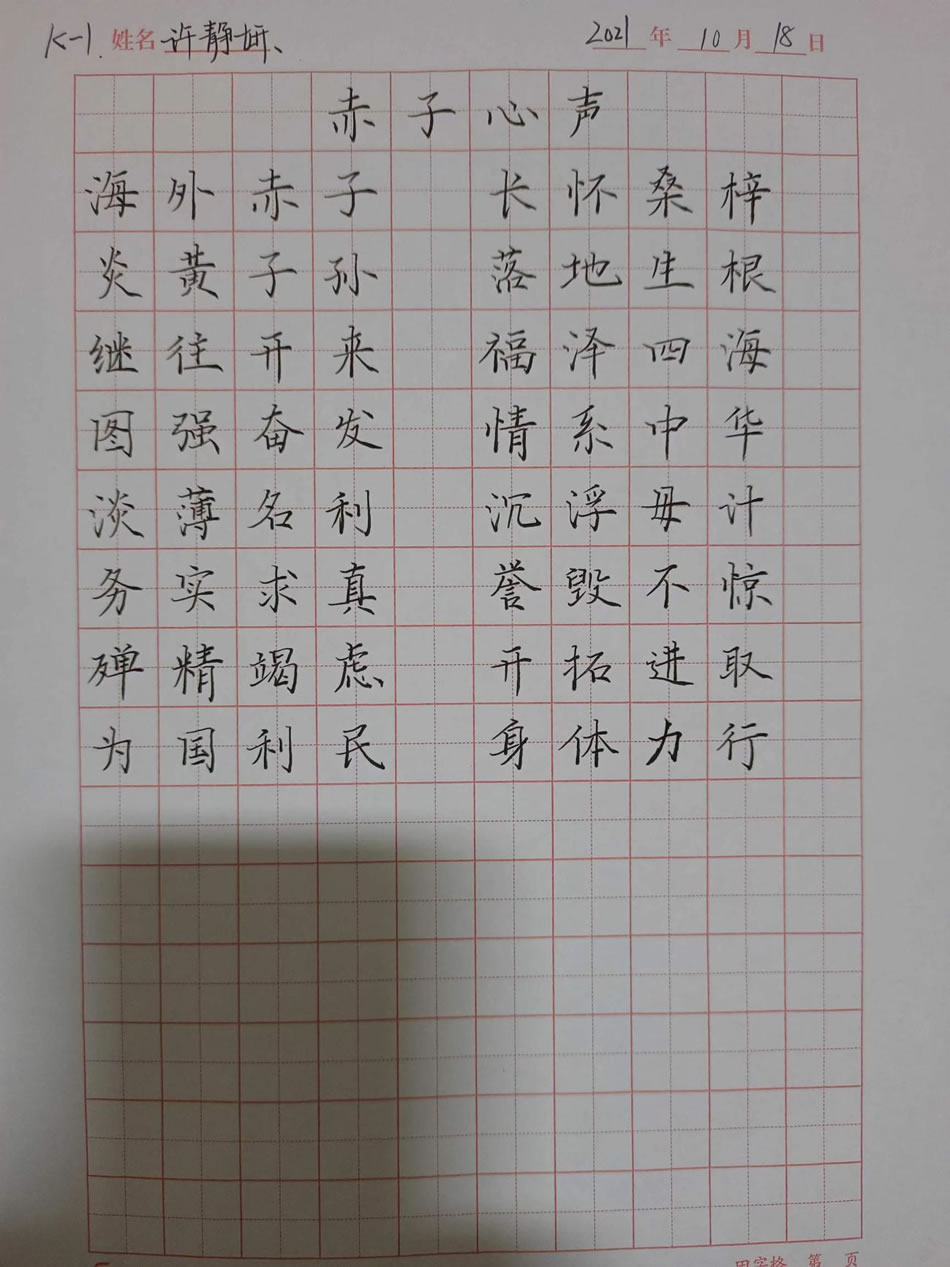 K-1. 姓名 许静妍、 2021 年 10 月 18 日
赤子心声
海外赤子 长怀桑梓
炎黄子孙 落地生根
继往开来 福泽四海
图强奋发 情系中华
淡薄名利 沉浮毋计
务实求真 誉毁不惊
殚精竭虑 开拓进取
为国利民 身体力行
田字格 第 页